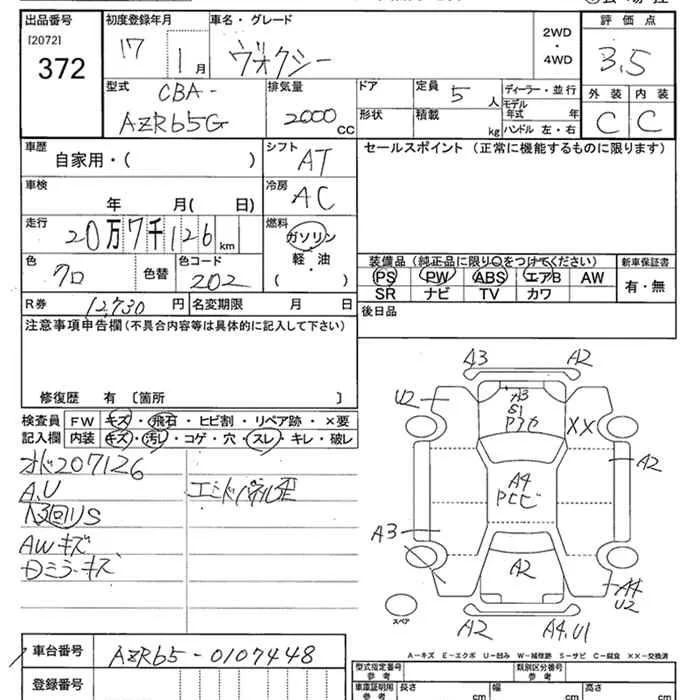 出品番号 [2072] 372
初度登録年月 17 1月
車名・グレード ヴォクシー
2WD・4WD
評価点 3.5
外装 内装
C C
型式 CBA-AZR65G
排気量 2000 CC
ドア
形状
定員 5 人
積載 kg
ディーラー・並行
モデル年式 年
ハンドル 左・右
車歴 自家用・( )
シフト AT
セールスポイント (正常に機能するものに限ります)
車検 年 月( 日)
冷房 AC
走行 20万7千126 km
燃料 ガソリン・軽油 ( )
色 クロ 色替 色コード 202
装備品 (純正品に限り○をつけてください)
PS PW ABS エアB AW
SR ナビ TV カワ
新車保証書 有・無
R券 12,730 円
名変期限 月 日
後日品
注意事項申告欄 (不具合内容等は具体的に記入して下さい)
修復歴 有 [箇所 ]
検査員記入欄
FW キズ・飛石・ヒビ割・リペア跡・×要
内装 キズ・汚レ・コゲ・穴・スレ・キレ・破レ
オド207126
A,U
AWキズ
Dミラーキズ
A3 A2
U2 A3 S1 XX
A2
A4
A3
A2
A4 U2
A2 A4,U1
スペア
A−キズ E−エクボ U−凹み W−補修跡 S−サビ C−腐食 XX−交換済
車台番号 AZR65-0107448
登録番号
型式指定番号 参考
類別区分番号 参考
車庫証明用 参考 長さ cm 幅 cm 高さ cm